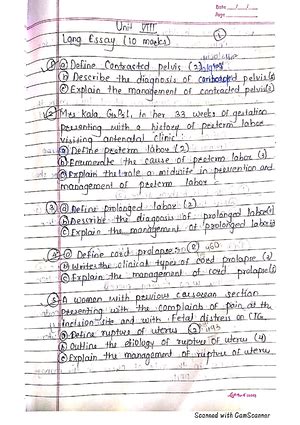 Date
Page
Unit VIII
Long Essay (10 marks)
1 a Define Contracted pelvis (2)
b Describe the diagnosis of contracted pelvis
c Explain the management of contracted pelvis (5)
2 Mrs Kala G2P1, in her 33 weeks of gestation
presenting with a history of preterm labor
visiting antenatal clinic:
a Define preterm labor (2)
b Enumerate the cause of preterm labor (3)
c Explain the role a midwife in prevention and
management of preterm labor
3 a Define prolonged labor (2)
b Describe the diagnosis of prolonged labor
c Explain the management of prolonged labor
a Define cord prolapse (2) 460
b Write the clinical types of cord prolapse (3)
c Explain the management of cord prolapse
A women with previous caesarean section
presenting with the complaints of pain at the
incision site and with Fetal distress on CTG
a Define rupture of uterus (2)
b Outline the etiology of rupture of uterus (4)
c Explain the management of rupture of uterus
Scanned with CamScanner